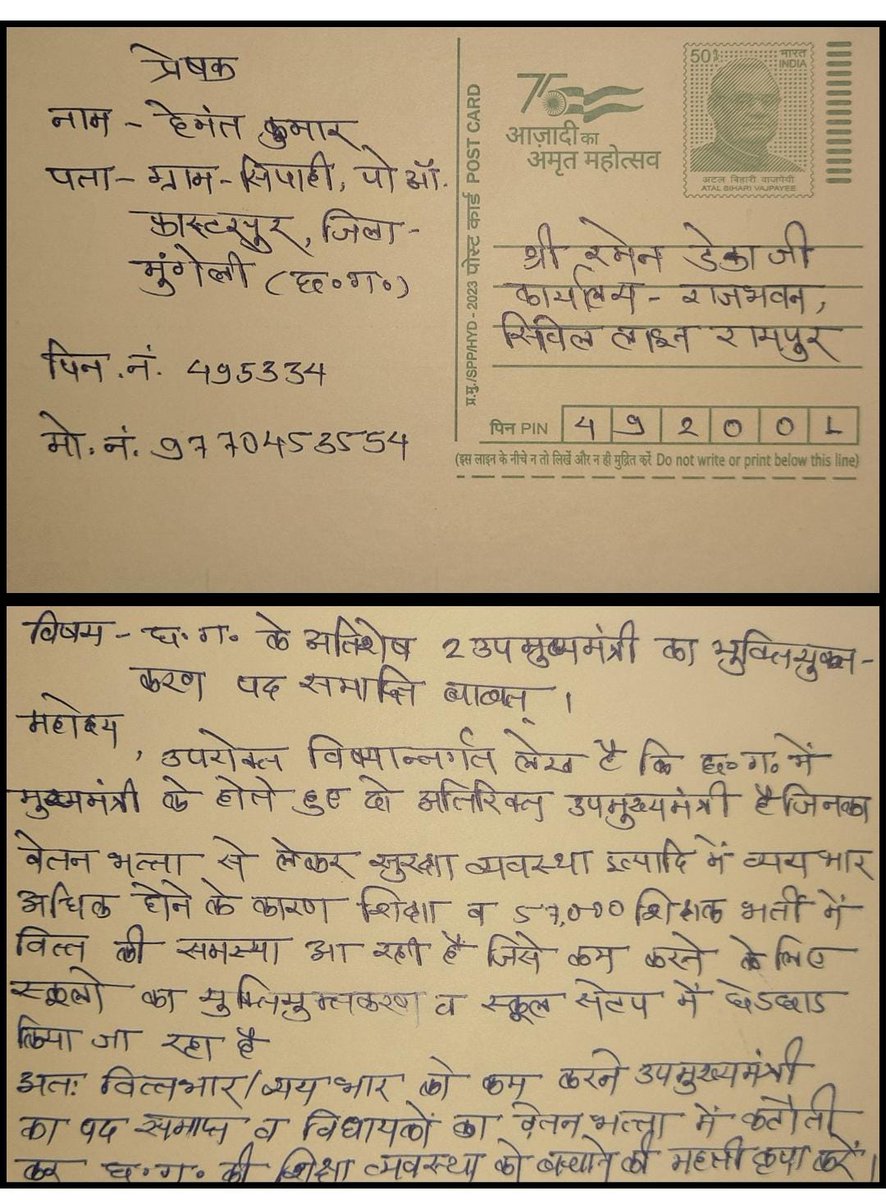 प्रेषक
नाम - हेमंत कुमार
पता - ग्राम - सिपाही, पो ऑ.
कास्टरपुर, जिला -
मुंगेली (छ०ग०)
पिन.नं. 495334
मो.नं. 9770453554
प्र.मु./SPP/HYD - 2023 पोस्ट कार्ड POST CARD
75
आज़ादी का
अमृत महोत्सव
50
भारत
INDIA
अटल बिहारी वाजपेयी
ATAL BIHARI VAJPAYEE
श्री रमेन डेका जी
कार्यालय - राजभवन,
सिविल लाइन रायपुर
पिन PIN 4 9 2 0 0 1
(इस लाइन के नीचे न तो लिखें और न ही मुद्रित करें Do not write or print below this line)
विषय - छ.ग. के अतिशेष 2 उपमुख्यमंत्री का युक्तियुक्त-
करण पद समाप्ति बाबत् ।
महोदय,
उपरोक्त विषयान्तर्गत लेख है कि छ०ग० में
मुख्यमंत्री के होते हुए दो अतिरिक्त उपमुख्यमंत्री है जिनका
वेतन भत्ता से लेकर सुरक्षा व्यवस्था इत्यादि में व्यय भार
अधिक होने के कारण शिक्षा व 57,000 शिक्षक भर्ती में
वित्त की समस्या आ रही है जिसे कम करने के लिए
स्कूलो का युक्तियुक्तकरण व स्कूल सेटप में छेडछाड
किया जा रहा है
अतः वित्तभार/व्यय भार को कम करने उपमुख्यमंत्री
का पद समाप्त व विधायकों का वेतन भत्ता में कटौती
कर छ.ग. की शिक्षा व्यवस्था को बचाने की महती कृपा करें।